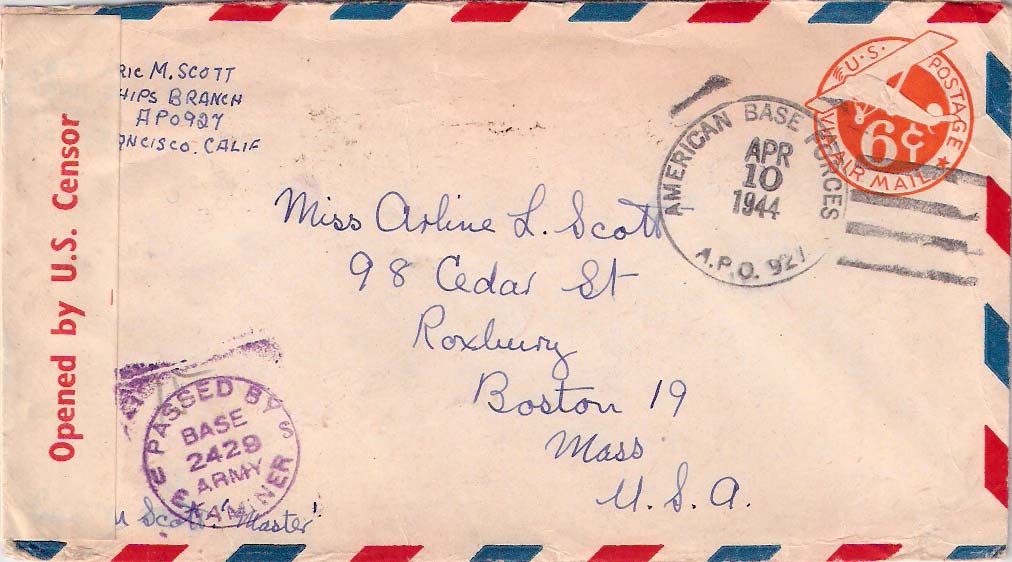 RIC M. SCOTT
HIPS BRANCH
APO927
NCISCO. CALIF
Opened by U.S. Censor
AMERICAN BASE FORCES
APR
10
1944
A.P.O. 927
U.S. POSTAGE
6¢
VIA AIR MAIL
Miss Arline L. Scott
98 Cedar St
Roxbury
Boston 19
Mass
U.S.A.
PASSED BY
BASE
2429
ARMY
EXAMINER
Scott 'Master'